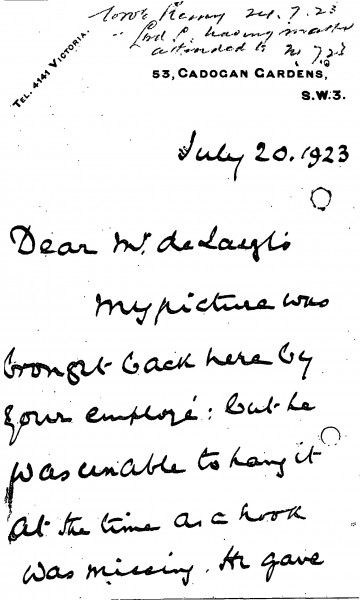 24.7.23
attended to 24.7.23
TEL. 4141 VICTORIA.
53, CADOGAN GARDENS,
S.W.3.
July 20. 1923
Dear Mr. de Laszlo
My picture was
brought back here by
your employé: but he
was unable to hang it
at the time as a hook
was missing. He gave